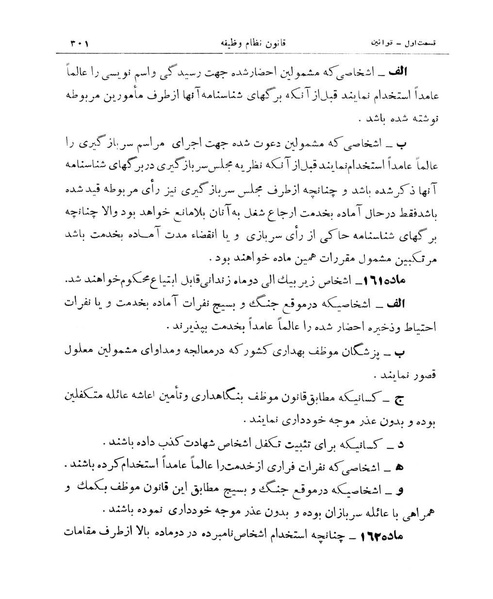 قسمت اول – قوانین
قانون نظام وظیفه
۳۰۱
الف – اشخاصی که مشمولین احضار شده جهت رسیدگی واسم نویسی را عالماً
عامداً استخدام نمایند قبل از آنکه برگهای شناسنامه آنها از طرف مأمورین مربوطه
نوشته شده باشد .
ب – اشخاصی که مشمولین دعوت شده جهت اجرای مراسم سربازگیری را
عالماً عامداً استخدام نمایند قبل از آنکه نظریه مجلس سربازگیری در برگهای شناسنامه
آنها ذکر شده باشد و چنانچه از طرف مجلس سربازگیری نیز رأی مربوطه قید شده
باشد فقط در حال آماده بخدمت ارجاع شغل به آنان بلامانع خواهد بود والا چنانچه
برگهای شناسنامه حاکی از رأی سربازی و یا انقضاء مدت آماده بخدمت باشد
مرتکبین مشمول مقررات همین ماده خواهند بود .
ماده ۱۶۱ – اشخاص زیر بیك الی دو ماه زندانی قابل ابتیاع محکوم خواهند شد.
الف – اشخاصیکه در موقع جنگ و بسیج نفرات آماده بخدمت و یا نفرات
احتیاط وذخیره احضار شده را عالماً عامداً بخدمت بپذیرند .
ب – پزشگان موظف بهداری کشور که در معالجه ومداوای مشمولین معلول
قصور نمایند .
ج – کسانیکه مطابق قانون موظف بنگاهداری وتأمین اعاشه عائله متکفلین
بوده و بدون عذر موجه خودداری نمایند .
د – کسانیکه برای تثبیت تکفل اشخاص شهادت کذب داده باشند .
ه – اشخاصی که نفرات فراری از خدمت را عالماً عامداً استخدام کرده باشند .
و – اشخاصیکه در موقع جنگ و بسیج مطابق این قانون موظف بکمك و
همراهی با عائله سربازان بوده و بدون عذر موجه خودداری نموده باشند .
ماده ۱۶۲ – چنانچه استخدام اشخاص نامبرده در دوماده بالا از طرف مقامات